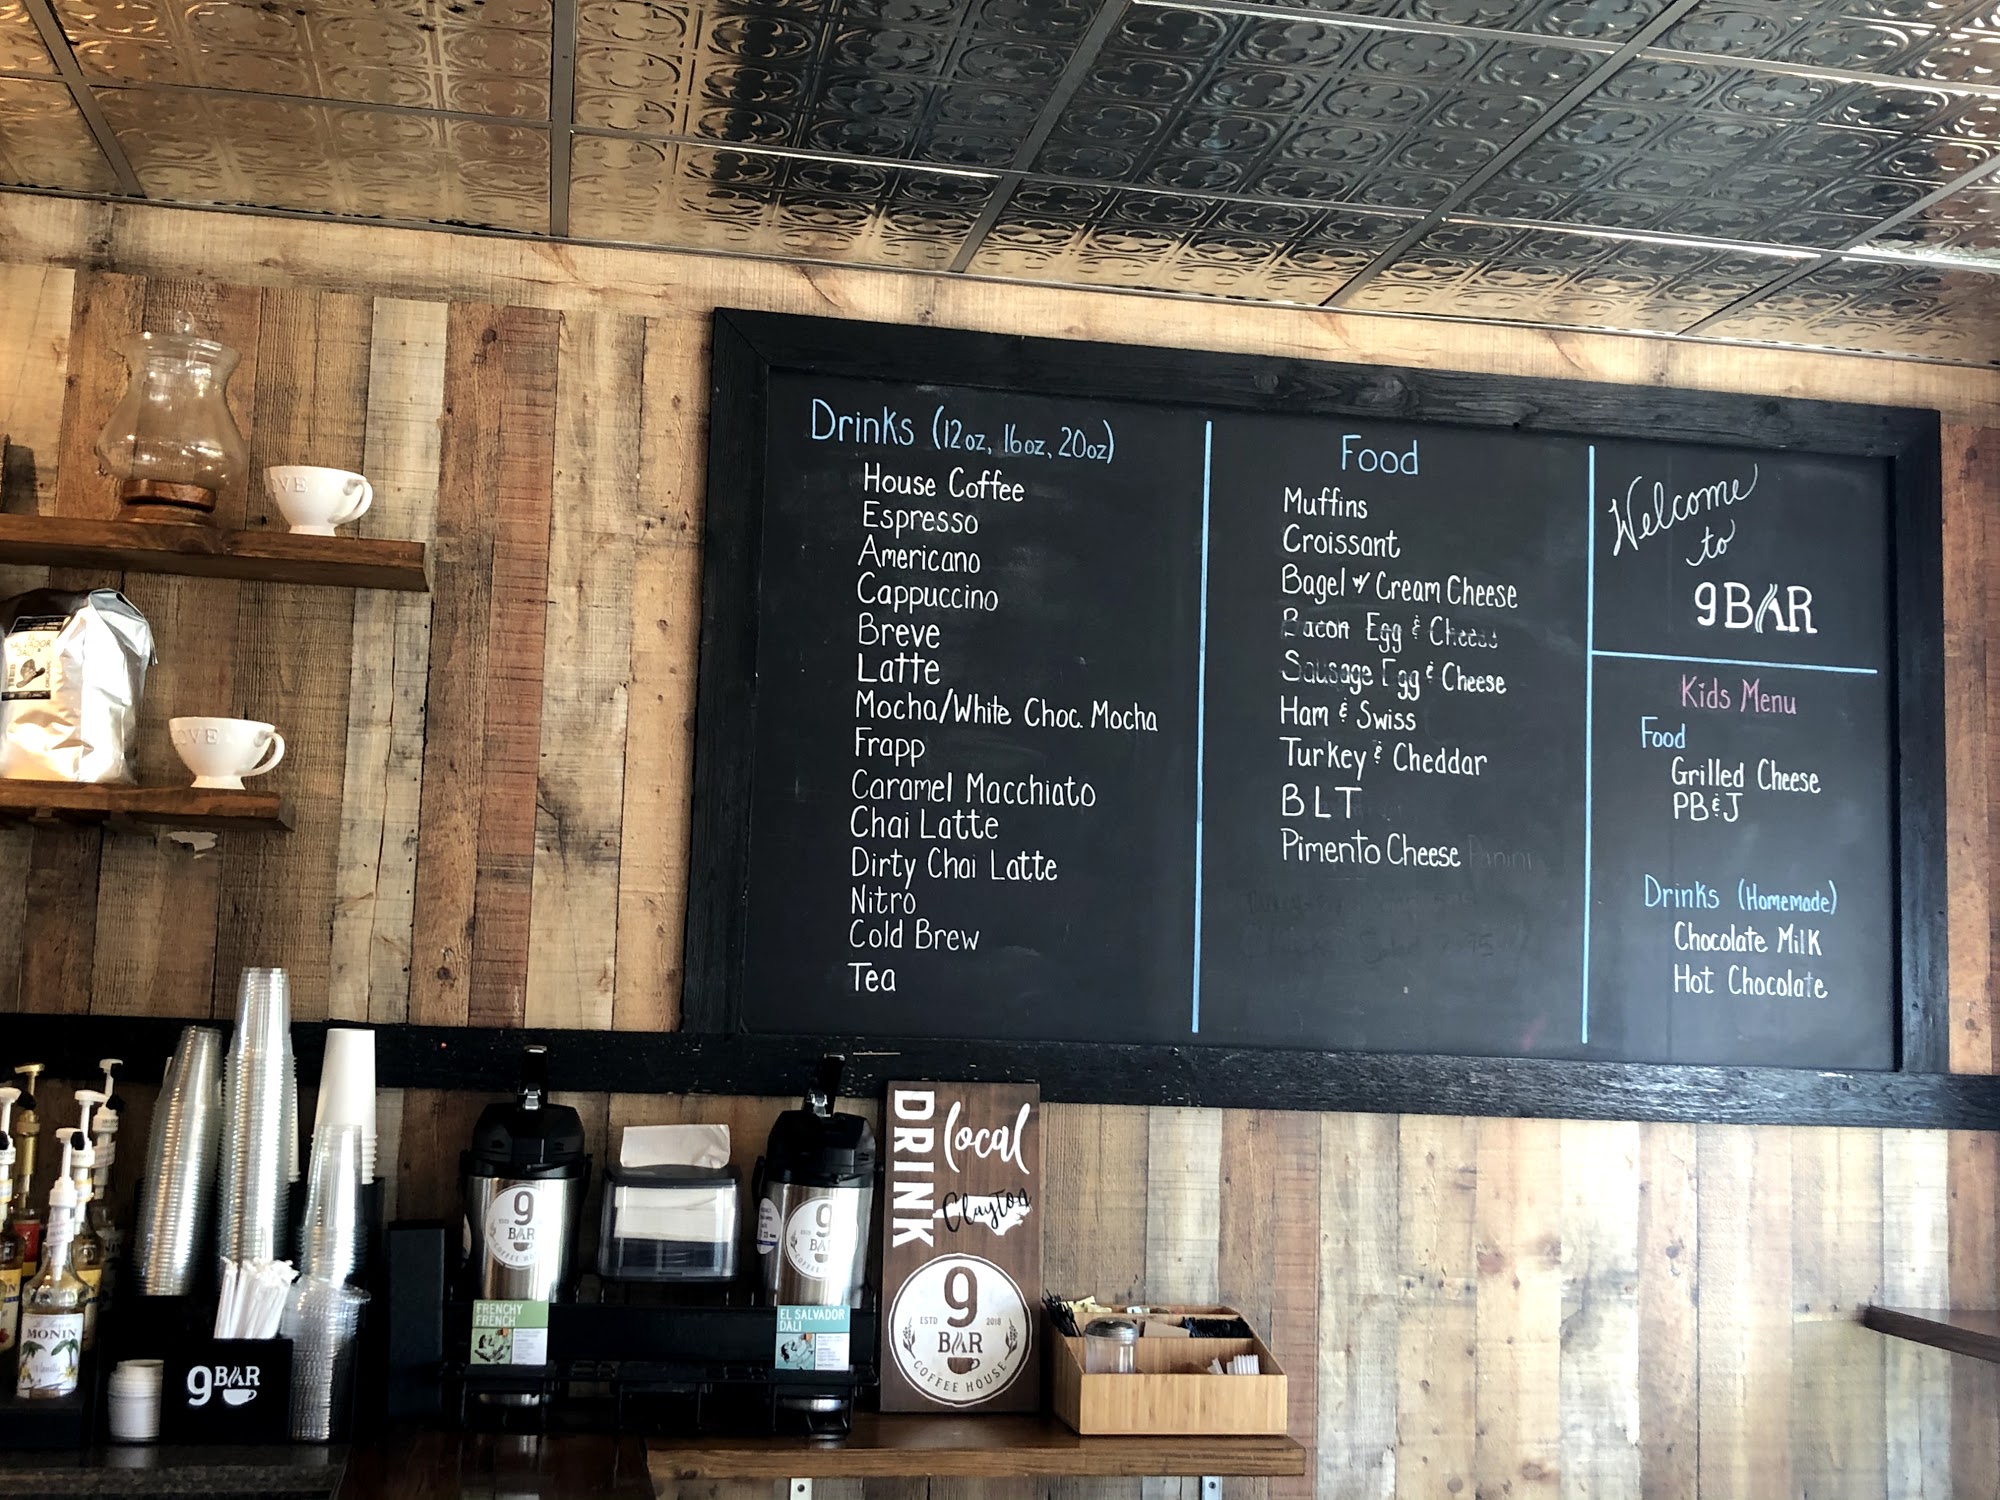 Drinks (12oz, 16oz, 20oz)
House Coffee
Espresso
Americano
Cappuccino
Breve
Latte
Mocha/White Choc. Mocha
Frapp
Caramel Macchiato
Chai Latte
Dirty Chai Latte
Nitro
Cold Brew
Tea
Food
Muffins
Croissant
Bagel w/ Cream Cheese
Bacon Egg & Cheese
Sausage Egg & Cheese
Ham & Swiss
Turkey & Cheddar
BLT
Pimento Cheese Panini
Welcome
to
9BAR
Kids Menu
Food
Grilled Cheese
PB&J
Drinks (Homemade)
Chocolate Milk
Hot Chocolate
OVE
OVE
DALI
MONIN
9BAR
9
BAR
COFFEE
FRENCHY
FRENCH
9
EL SALVADOR
DALI
DRINK
local
Clayton
9
ESTD 2018
BAR
COFFEE HOUSE